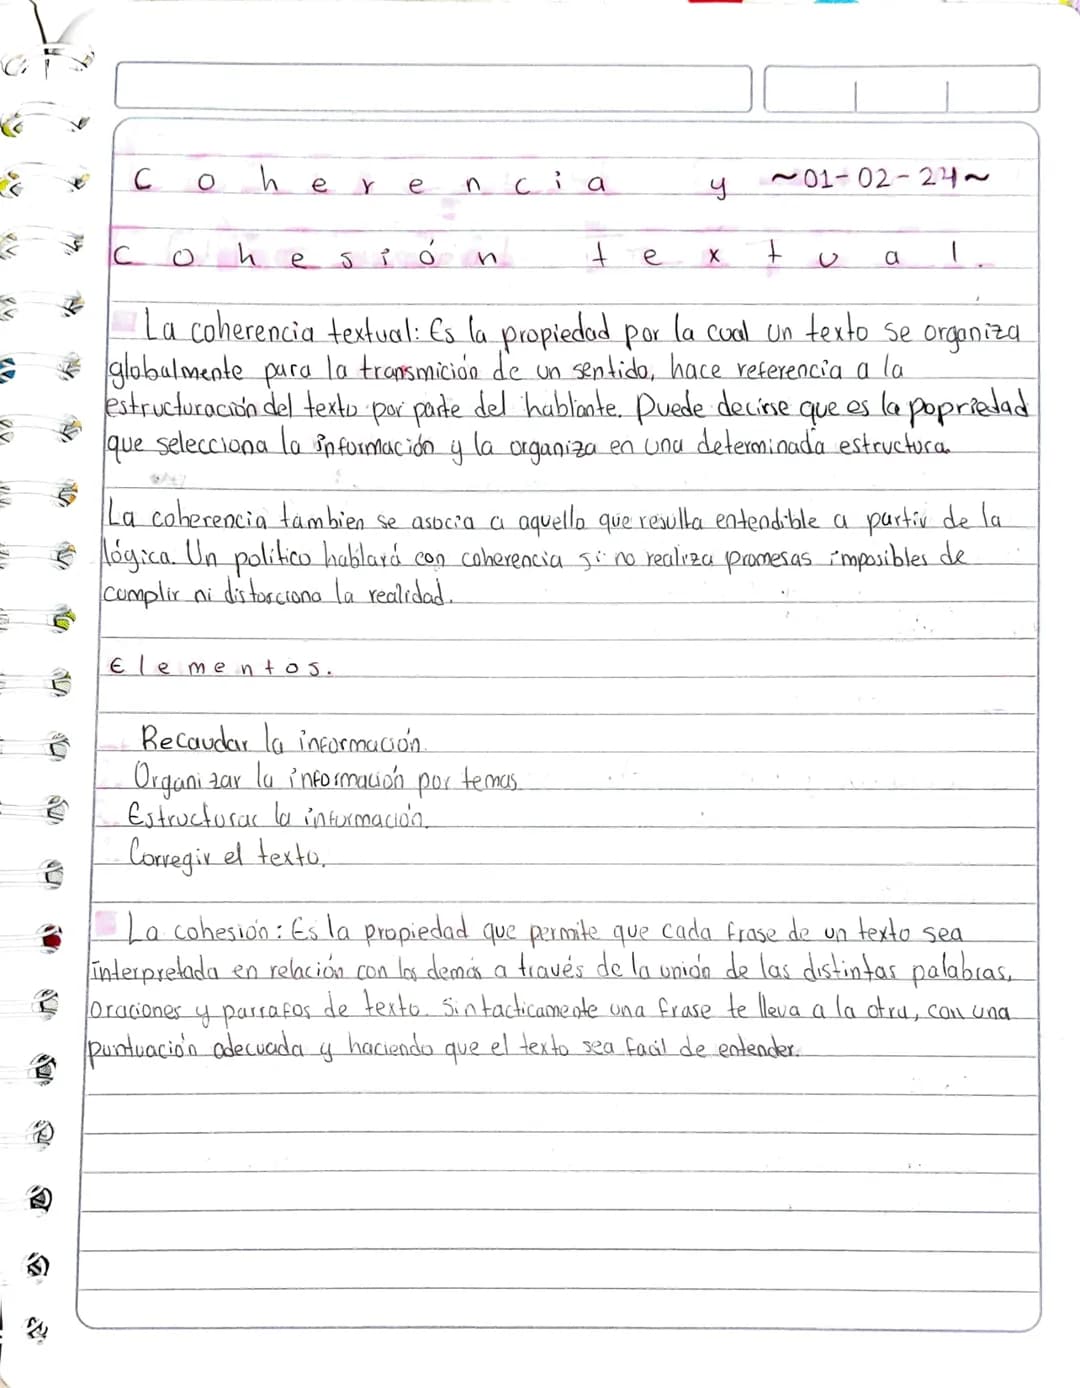 Coherencia y ~01-02-24~
cohesión textual.
La coherencia textual: Es la propiedad por la cual un texto se organiza
globalmente para la transmición de un sentido, hace referencia a la
estructuración del texto por parte del hablante. Puede decirse que es la popriedad
que selecciona la información y la organiza en una determinada estructura.
La coherencia tambien se asocia a aquello que resulta entendible a partir de la
lógica. Un politico hablará con coherencia si no realiza promesas imposibles de
cumplir ni distorciona la realidad.
Elementos.
Recaudar la información.
Organizar la información por temas.
Estructurar la información.
Corregir el texto.
La cohesión: Es la propiedad que permite que cada frase de un texto sea
interpretada en relación con los demás a través de la unión de las distintas palabras,
oraciones y parrafos de texto. Sintacticamente una frase te lleva a la otra, con una
puntuación adecuada y haciendo que el texto sea facil de entender.